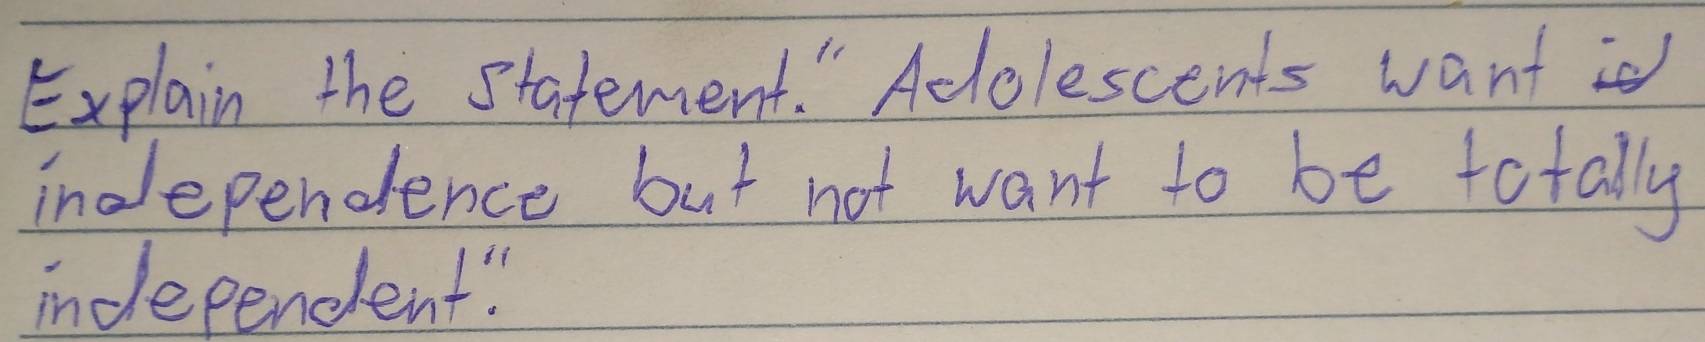 Explain the statement." Adolescents want id
independence but not want to be totally
independent".